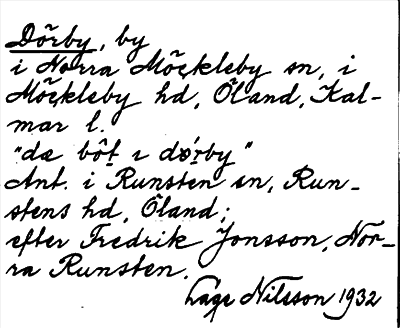 Dörby, by
i Norra Möckleby sn, i
Möckleby hd, Öland, Kal-
mar l.
"da bôt ı dǿrby"
Ant. i Runsten sn, Run-
stens hd, Öland;
efter Fredrik Jonsson, Nor-
ra Runsten.
Lage Nilsson 1932